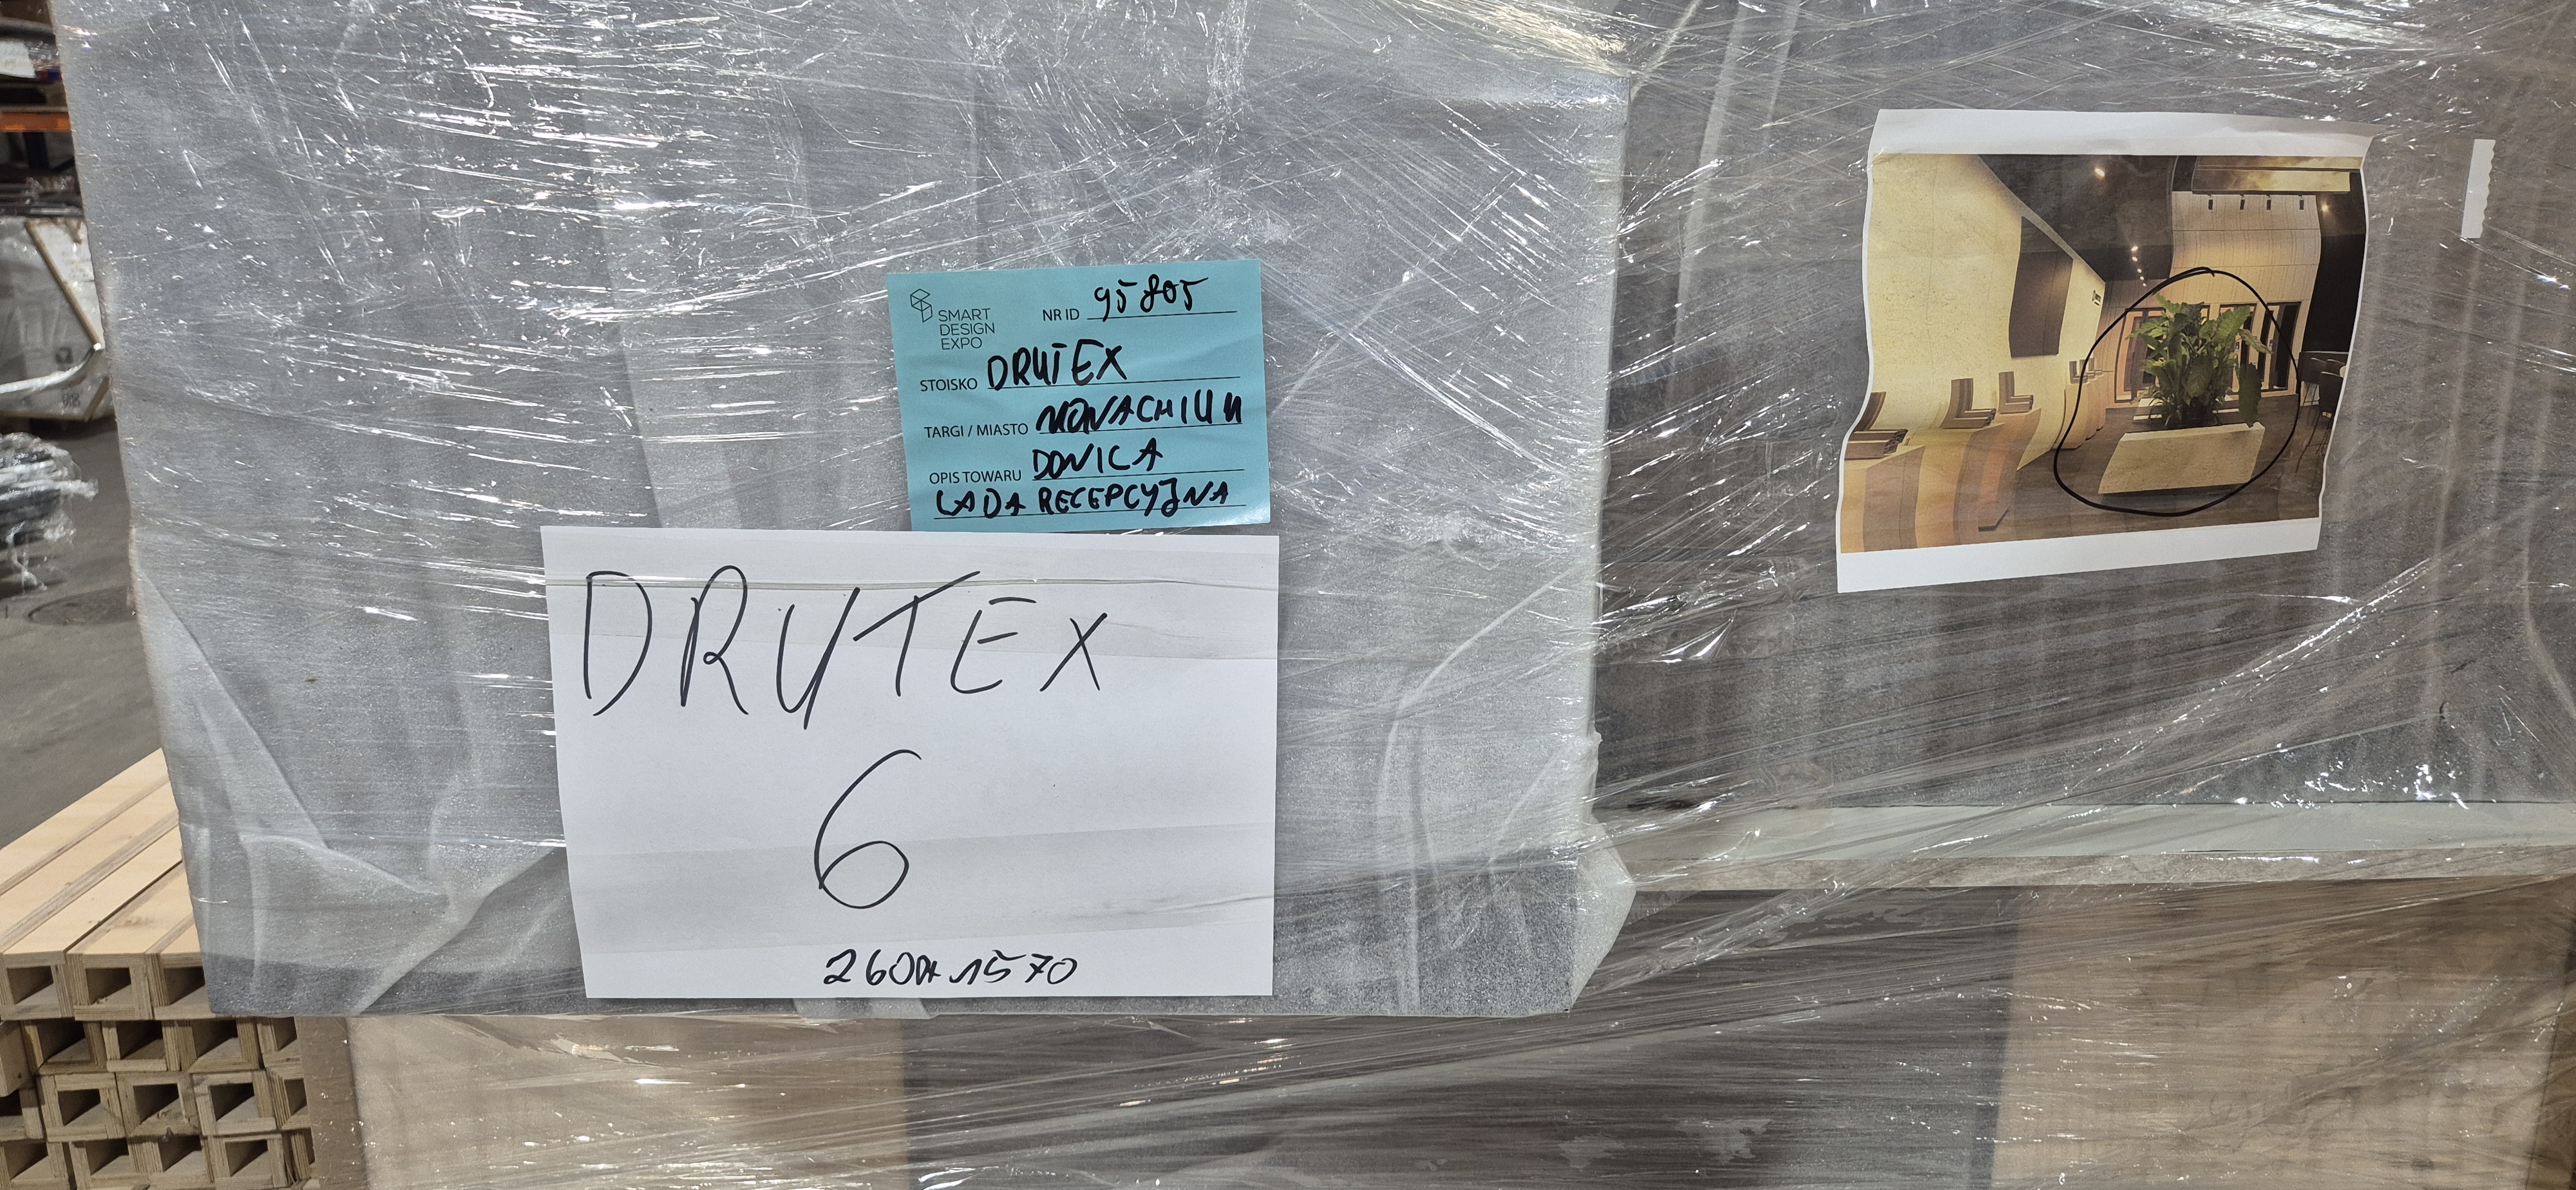 SMART
DESIGN
EXPO
NR ID 95805
STOISKO DRUTEX
TARGI / MIASTO MONACHIUM
OPIS TOWARU DONICA
LADA RECEPCYJNA
DRUTEX
6
1570